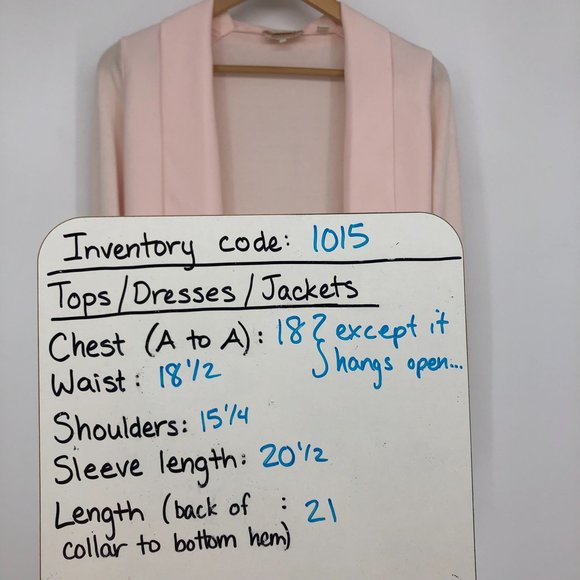 Inventory code: 1015
Tops/Dresses/Jackets
Chest (A to A): 18 } except it
Waist: 18 1/2 } hangs open...
Shoulders: 15 1/4
Sleeve length: 20 1/2
Length (back of : 21
collar to bottom hem)